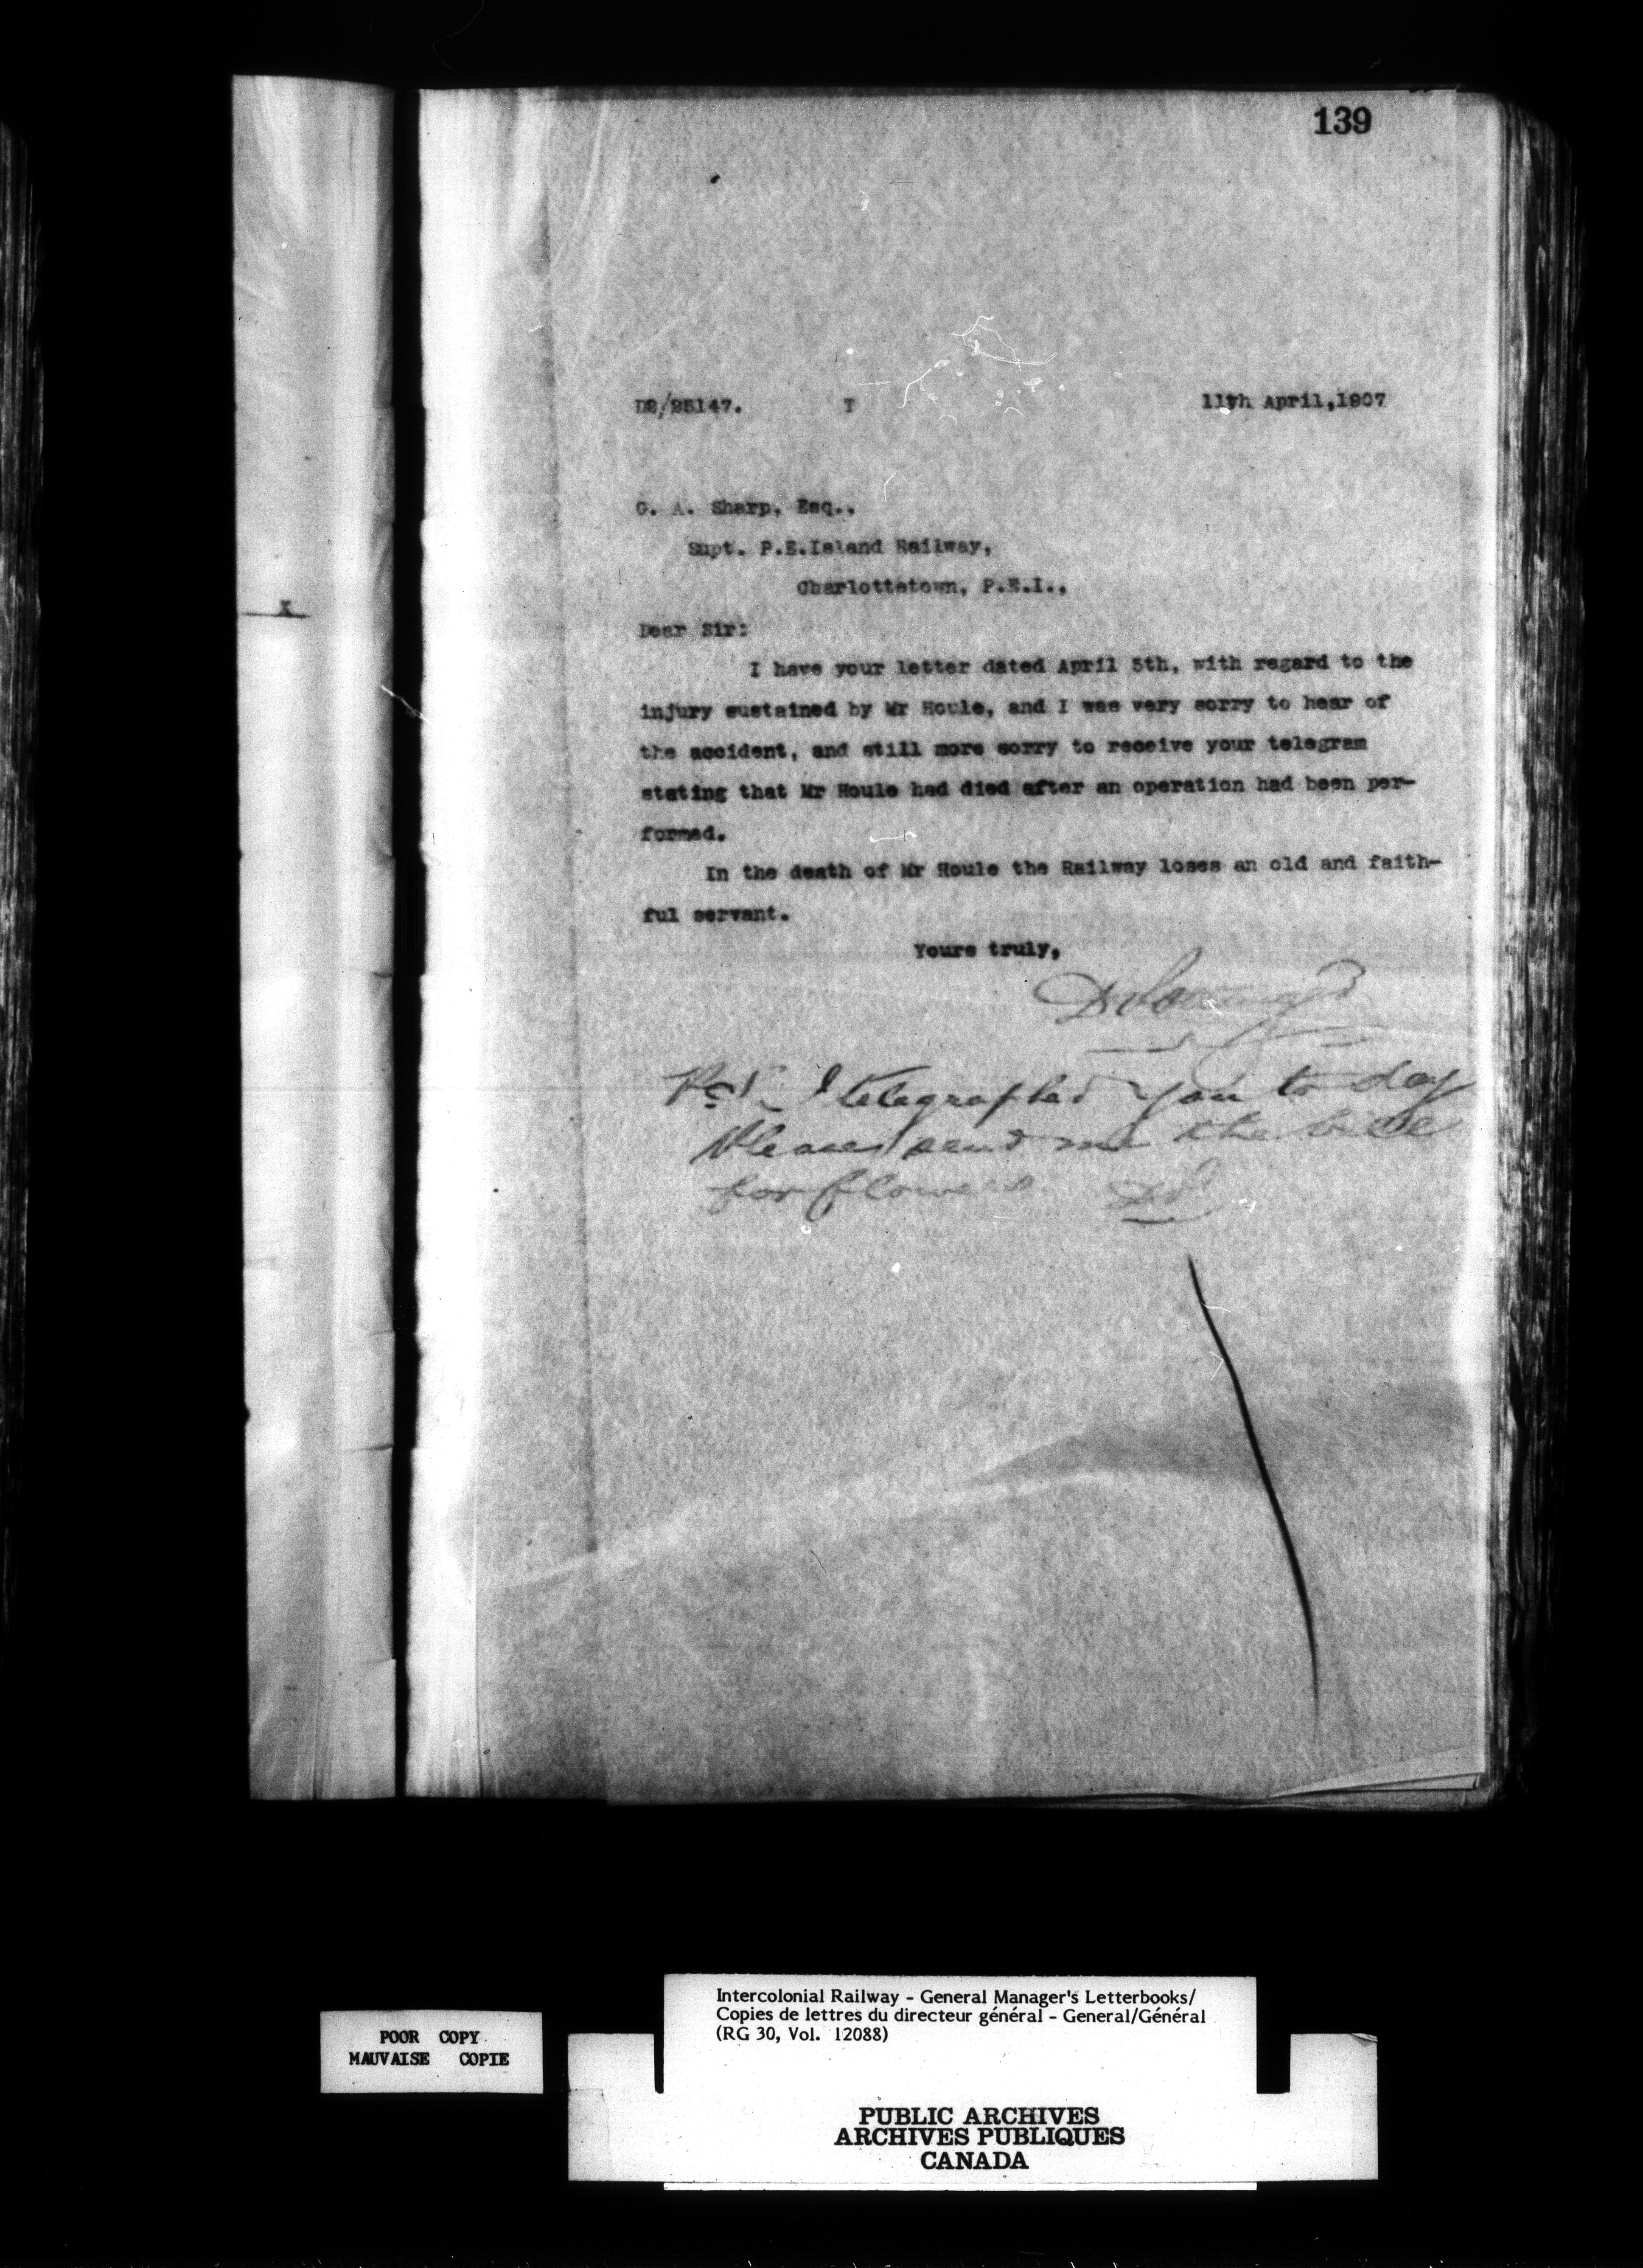 139
D2/25147. T 11th April,1907
G. A. Sharp, Esq.,
Supt. P.E.Island Railway,
Charlottetown, P.E.I.,
X
Dear Sir:
I have your letter dated April 5th, with regard to the
injury sustained by Mr Houle, and I was very sorry to hear of
the accident, and still more sorry to receive your telegram
stating that Mr Houle had died after an operation had been per-
formed.
In the death of Mr Houle the Railway loses an old and faith-
ful servant.
Yours truly,
I telegraphed you to day
Please send me the bill
for flowers DP
Intercolonial Railway - General Manager's Letterbooks/
Copies de lettres du directeur général - General/Général
(RG 30, Vol. 12088)
POOR COPY
MAUVAISE COPIE
PUBLIC ARCHIVES
ARCHIVES PUBLIQUES
CANADA